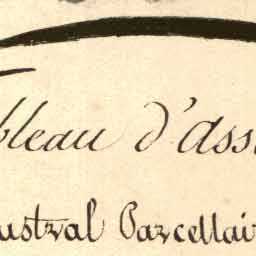 bleau d'asse
ustral Parcellair